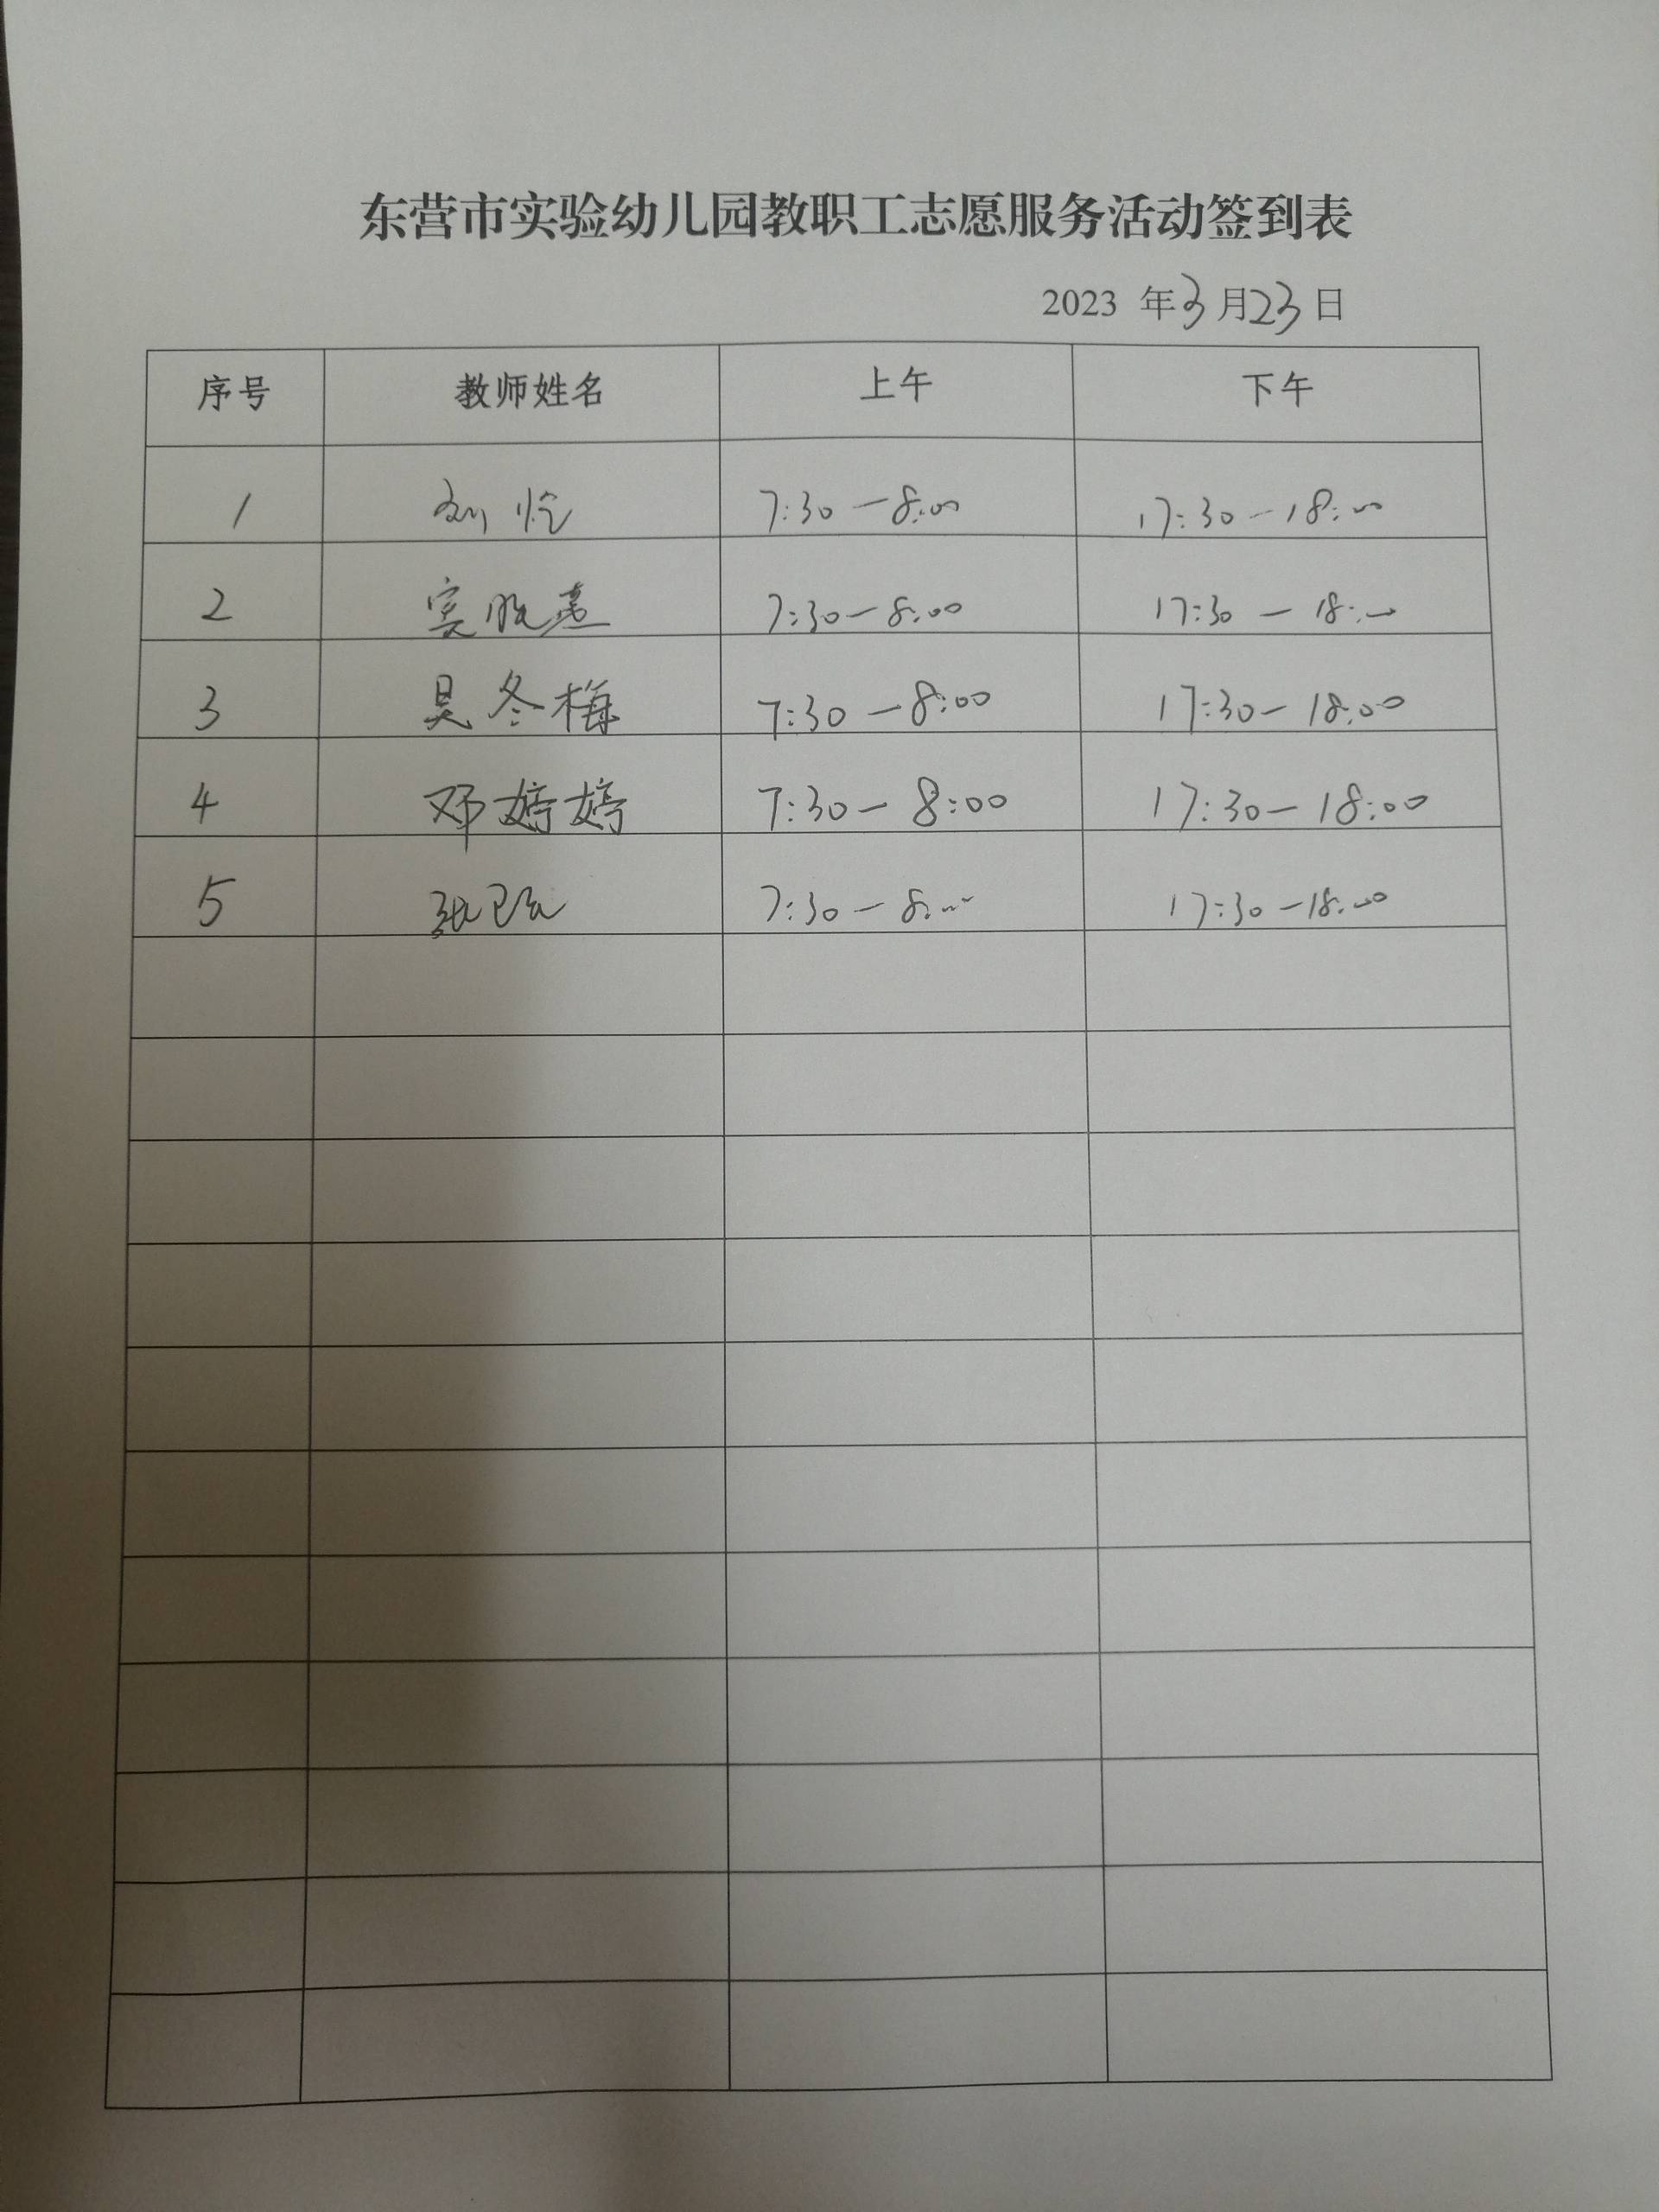 东营市实验幼儿园教职工志愿服务活动签到表
2023 年3月23日
序号 教师姓名 上午 下午
1 刘 7:30-8:00 17:30-18:00
2 7:30-8:00 17:30-18:00
3 吴冬梅 7:30-8:00 17:30-18:00
4 邓婷婷 7:30-8:00 17:30-18:00
5 张 7:30-8:00 17:30-18:00